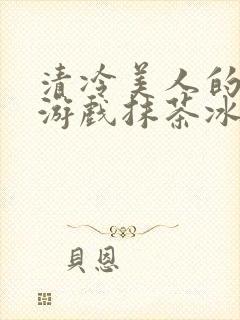 清冷美人的
游戏抹茶冰
貝恩